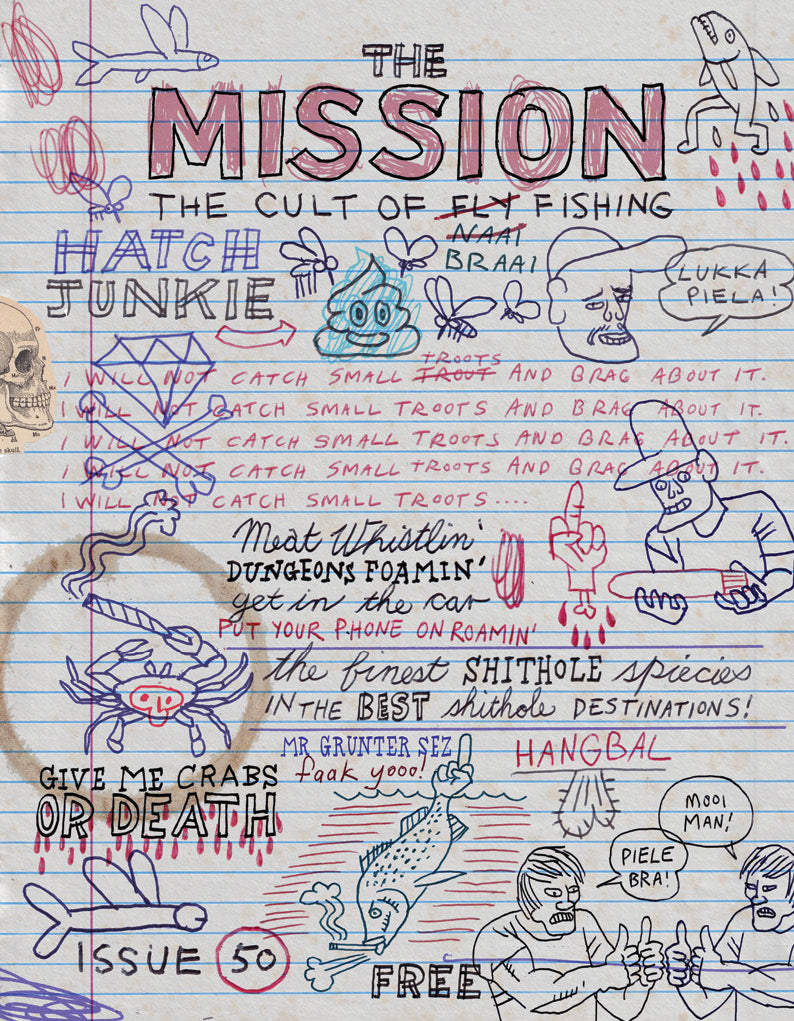 THE
MISSION
THE CULT OF FLY FISHING
NAAI
BRAAI
HATCH
JUNKIE
LUKKA
PIELA!
TROOTS
I WILL NOT CATCH SMALL TROUT AND BRAG ABOUT IT.
I WILL NOT CATCH SMALL TROOTS AND BRAG ABOUT IT.
I WILL NOT CATCH SMALL TROOTS AND BRAG ABOUT IT.
I WILL NOT CATCH SMALL TROOTS AND BRAG ABOUT IT.
I WILL NOT CATCH SMALL TROOTS ....
skull
Meat Whistlin'
DUNGEONS FOAMIN'
get in the car
PUT YOUR PHONE ON ROAMIN'
the finest SHITHOLE spiecies
IN THE BEST shithole DESTINATIONS!
MR GRUNTER SEZ
faak yooo!
HANGBAL
GIVE ME CRABS
OR DEATH
MOOI
MAN!
PIELE
BRA!
ISSUE 50
FREE